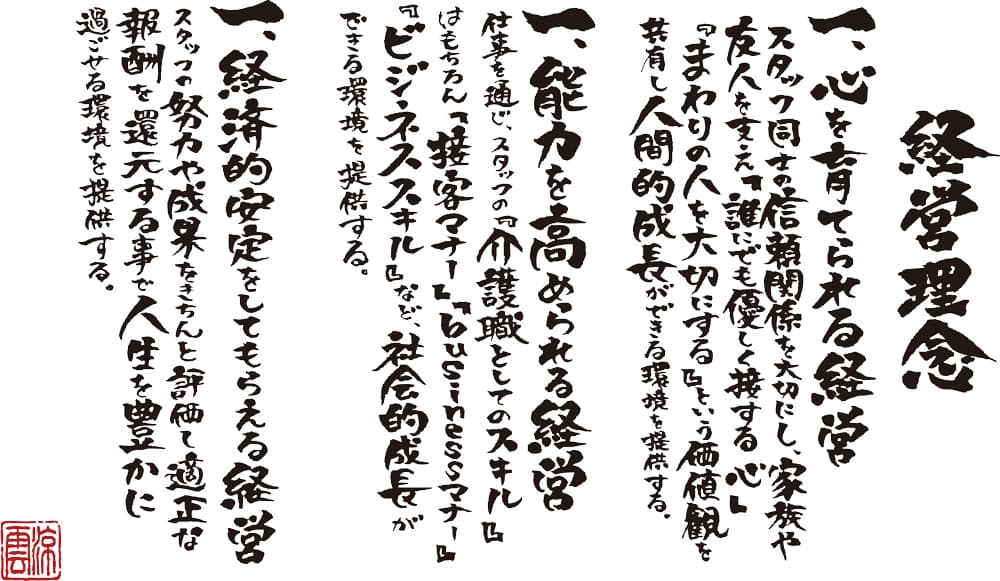 経営理念
一、心を育てられる経営
スタッフ同士の信頼関係を大切にし、家族や
友人を支え「誰にでも優しく接する心」
『まわりの人を大切にする』という価値観を
共有し人間的成長ができる環境を提供する。
一、能力を高められる経営
仕事を通じ、スタッフの『介護職としてのスキル』
はもちろん『接客マナー』『businessマナー』
『ビジネススキル』など、社会的成長が
できる環境を提供する。
一、経済的安定をしてもらえる経営
スタッフの努力や成果をきちんと評価て適正な
報酬を還元する事で人生を豊かに
過ごせる環境を提供する。
涼雲